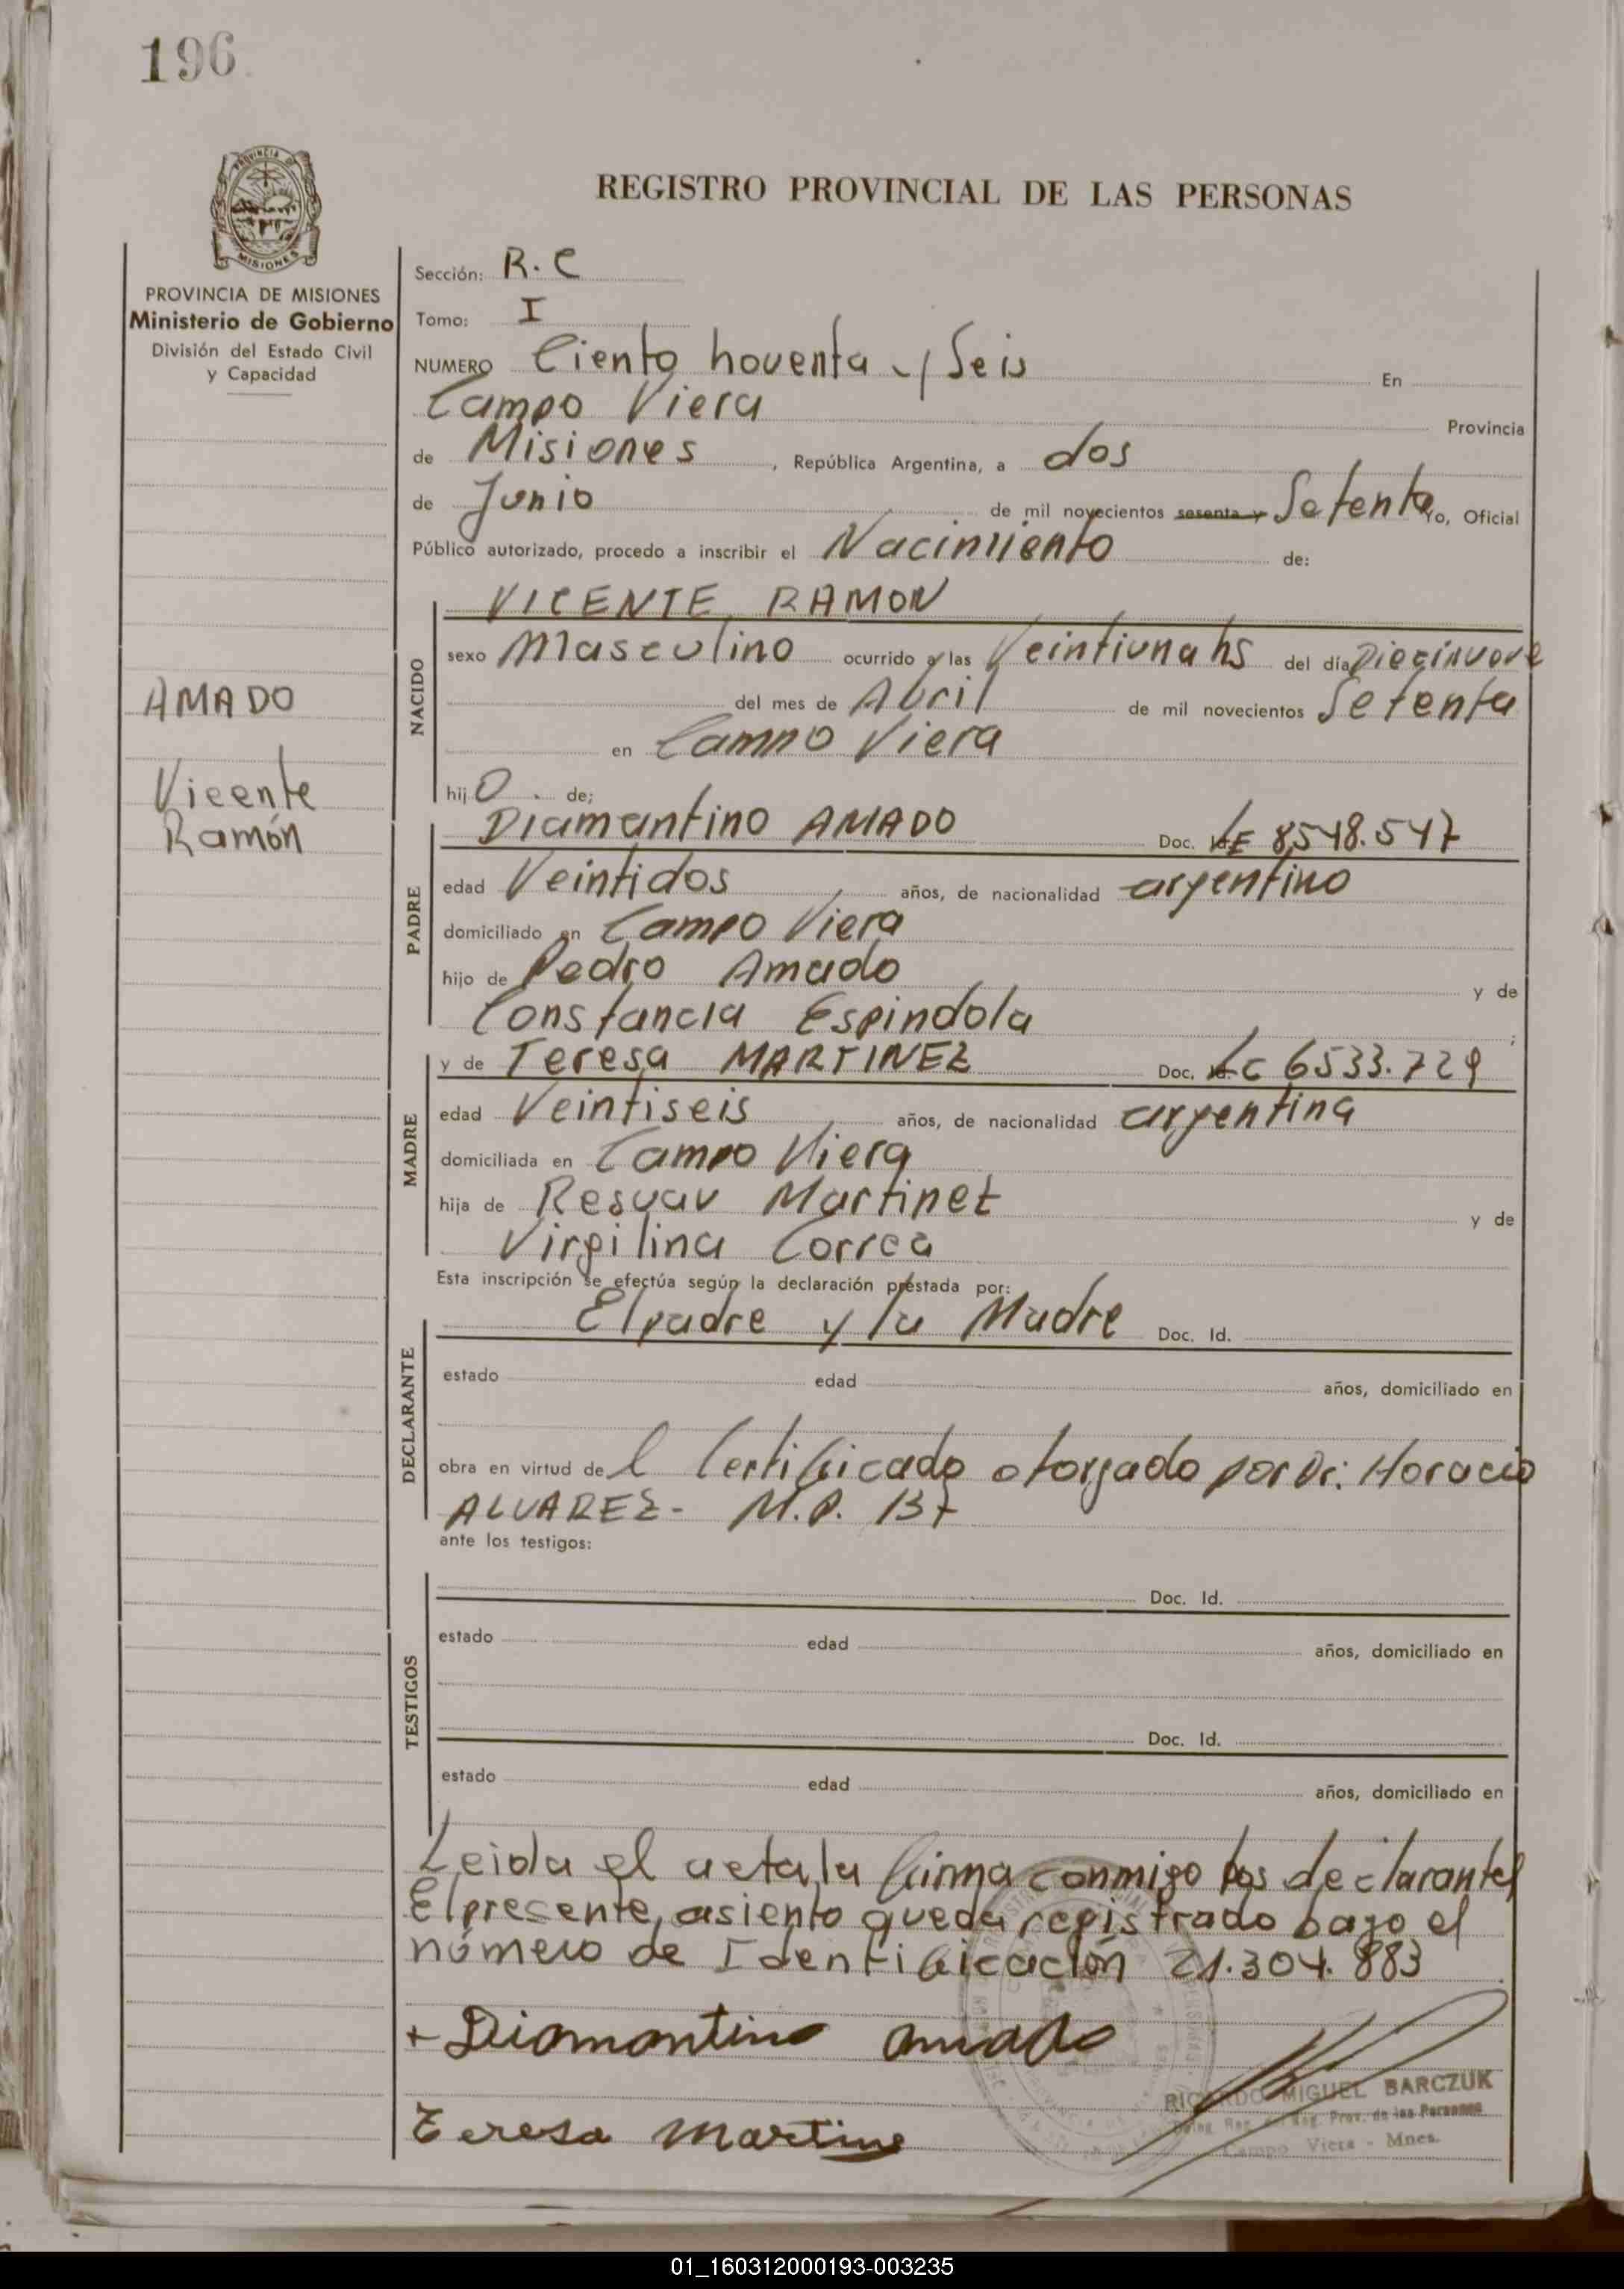 196
REGISTRO PROVINCIAL DE LAS PERSONAS
PROVINCIA DE MISIONES
Ministerio de Gobierno
División del Estado Civil
y Capacidad
AMADO
Vicente
Ramón
Sección: R.C
Tomo: I
NUMERO Ciento noventa y Seis En
Campo Viera Provincia
de Misiones, República Argentina, a dos
de Junio de mil novecientos sesenta y Setenta Yo, Oficial
Público autorizado, procedo a inscribir el Nacimiento de:
NACIDO
VICENTE RAMON
sexo Masculino ocurrido a las Veintiuna hs del día Diecinueve
del mes de Abril de mil novecientos Setenta
en Campo Viera
hijo de;
PADRE
Diamantino AMADO Doc. LE 8548.547
edad Veintidos años, de nacionalidad argentino
domiciliado en Campo Viera
hijo de Pedro Amado y de
Constancia Espindola ;
MADRE
y de Teresa MARTINEZ Doc. LC 6533.729
edad Veintiseis años, de nacionalidad argentina
domiciliada en Campo Viera
hija de Martinez y de
Virgilina Correa
Esta inscripción se efectúa según la declaración prestada por:
DECLARANTE
El padre y la Madre Doc. Id.
estado edad años, domiciliado en
obra en virtud del Certificado otorgado por Dr. Horacio
ALVAREZ- M.P. 137
ante los testigos:
TESTIGOS
Doc. Id.
estado edad años, domiciliado en
Doc. Id.
estado edad años, domiciliado en
Leida el acta, la firma conmigo los declarantes
El presente, asiento queda registrado bajo el
número de Identificación 21.304.883
+ Diamantino amado
Teresa Martine
RICARDO MIGUEL BARCZUK
Reg. Prov. de las Personas
Campo Viera - Mnes.
01_160312000193-003235